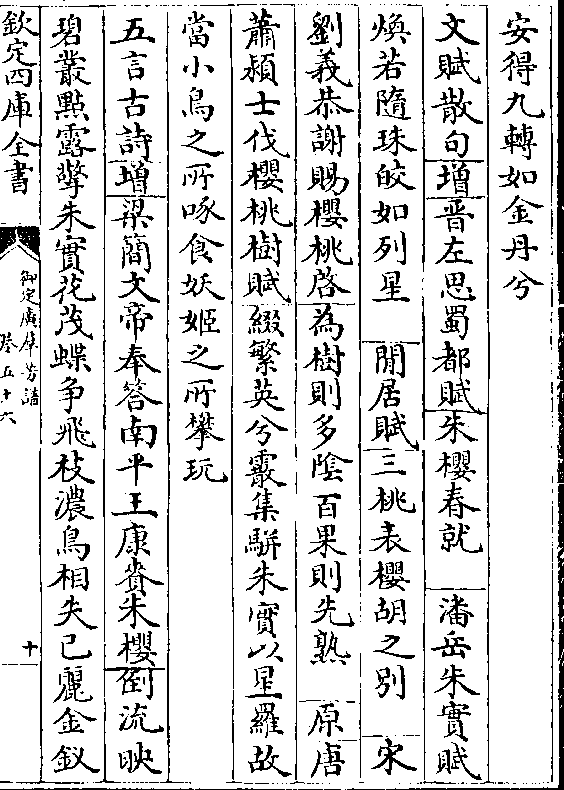 安得九轉如金丹兮
文賦散句増晉左思蜀都賦朱櫻春就 潘岳朱實賦
煥若隨珠皎如列星 閒居賦三桃表櫻胡之别 宋
劉義恭謝賜櫻桃啓為樹則多陰百果則先熟 原唐
蕭潁士伐櫻桃樹賦綴繁英兮霰集駢朱實以星羅故
當小鳥之所啄食妖姬之所攀玩
五言古詩増梁簡文帝奉答南平王康賚朱櫻倒流映
碧叢點露擎朱實花茂蝶争飛枝濃鳥相失已麗金釵
欽定四庫全書
御定廣羣芳譜
卷五十六
十